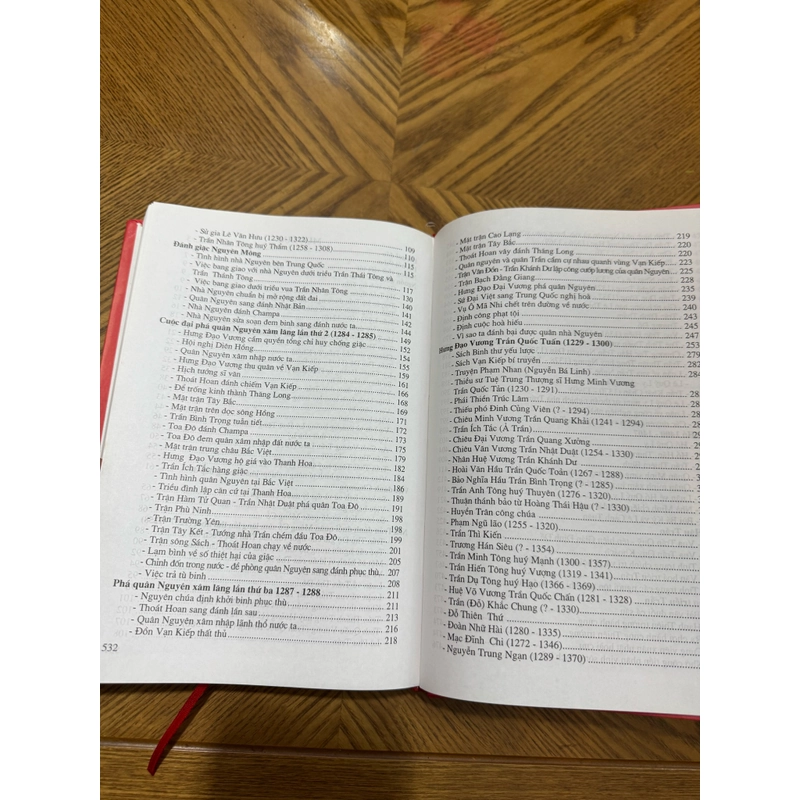 - Sử gia Lê Văn Hưu (1230 - 1322)
- Trần Nhân Tông huý Thẩm (1258 - 1308) 109
Đánh giặc Nguyên Mông 110
- Tình hình nhà Nguyên bên Trung Quốc 115
- Việc bang giao với nhà Nguyên dưới triều Trần Thái Tông và 115
Trần Thánh Tông
- Việc bang giao dưới triều vua Trần Nhân Tông 117
- Nhà Nguyên chuẩn bị mở rộng đất đai 130
- Quân Nguyên sang đánh Nhật Bản 140
- Nhà Nguyên đánh Champa 141
- Nhà Nguyên sửa soạn đem binh sang đánh nước ta 142
Cuộc đại phá quân Nguyên xâm lăng lần thứ 2 (1284 - 1285) 144
- Hưng Đạo Vương cầm quyền tổng chỉ huy chống giặc 152
- Hội nghị Diên Hồng 152
- Quân Nguyên xâm nhập nước ta 154
- Hưng Đạo Vương thu quân về Vạn Kiếp 155
- Hịch tướng sĩ văn 159
- Thoát Hoan đánh chiếm Vạn Kiếp 161
- Để trống kinh thành Thăng Long 166
- Mặt trận Tây Bắc 168
- Mặt trận trên dọc sông Hồng 169
- Trần Bình Trọng tuẫn tiết 171
- Toa Đô đánh Champa 172
- Toa Đô đem quân xâm nhập đất nước ta 173
- Mặt trận trung châu Bắc Việt 175
- Hưng Đạo Vương hộ giá vào Thanh Hoa 179
- Trần Ích Tắc hàng giặc 182
- Tình hình quân Nguyên tại Bắc Việt 184
- Triều đình lập căn cứ tại Thanh Hoa 186
- Trận Hàm Tử Quan - Trần Nhật Duật phá quân Toa Đô 189
- Trận Phù Ninh 191
- Trận Trường Yên 198
- Trận Tây Kết - Tướng nhà Trần chém đầu Toa Đô 198
- Trận sông Sách - Thoát Hoan chạy về nước 199
- Lạm bình về số thiệt hại của giặc 201
- Chỉnh đốn trong nước - đề phòng quân Nguyên sang đánh phục thù 205
- Việc trả tù binh 207
Phá quân Nguyên xâm lăng lần thứ ba 1287 - 1288 208
- Nguyên chúa định khởi binh phục thù 211
- Thoát Hoan sang đánh lần sau 211
- Quân Nguyên xâm nhập lãnh thổ nước ta 213
- Đồn Vạn Kiếp thất thủ 216
218
532
- Mặt trận Cao Lạng 219
- Mặt trận Tây Bắc 220
- Thoát Hoan vây đánh Thăng Long 220
- Quân nguyên và quân Trần cầm cự nhau quanh vùng Vạn Kiếp 223
- Trận Vân Đồn - Trần Khánh Dư lập công cướp lương của quân Nguyên 225
- Trận Bạch Đằng Giang 228
- Hưng Đạo Đại Vương phá quân Nguyên 235
- Sứ Đại Việt sang Trung Quốc nghị hoà 239
- Vụ Ô Mã Nhi chết trên đường về nước 240
- Định công phạt tội 243
- Định cuộc hoà hiếu 245
- Vì sao ta đánh bại được quân nhà Nguyên 247
Hưng Đạo Vương Trần Quốc Tuấn (1229 - 1300) 253
- Sách Binh thư yếu lược 279
- Sách Vạn Kiếp bí truyền 282
- Truyện Phạm Nhan (Nguyễn Bá Linh)
- Thiều sư Tuệ Trung Thượng sĩ Hưng Minh Vương
Trần Quốc Tản (1230 - 1291)
- Phái Thiền Trúc Lâm
- Thiếu phó Đinh Củng Viên (? - 1294)
- Chiêu Minh Vương Trần Quang Khải (1241 - 1294)
- Trần Ích Tắc (Ả Trần)
- Chiêu Đại Vương Trần Quang Xưởng
- Chiêu Văn Vương Trần Nhật Duật (1254 - 1330)
- Nhân Huệ Vương Trần Khánh Dư
- Hoài Văn Hầu Trần Quốc Toản (1267 - 1288)
- Bảo Nghĩa Hầu Trần Bình Trọng (? - 1285)
- Trần Anh Tông huý Thuyên (1276 - 1320)
- Thuận thánh bảo từ Hoàng Thái Hậu (? - 1330)
- Huyền Trân công chúa
- Phạm Ngũ lão (1255 - 1320)
- Trần Thì Kiến
- Trương Hán Siêu (? - 1354)
- Trần Minh Tông huý Mạnh (1300 - 1357)
- Trần Hiến Tông huý Vượng (1319 - 1341)
- Trần Dụ Tông huý Hạo (1366 - 1369)
- Huệ Võ Vương Trần Quốc Chẩn (1281 - 1328)
- Trần (Đỗ) Khắc Chung (? - 1330)
- Đỗ Thiên Thứ
- Đoàn Nhữ Hài (1280 - 1335)
- Mạc Đĩnh Chi (1272 - 1346)
- Nguyễn Trung Ngạn (1289 - 1370)